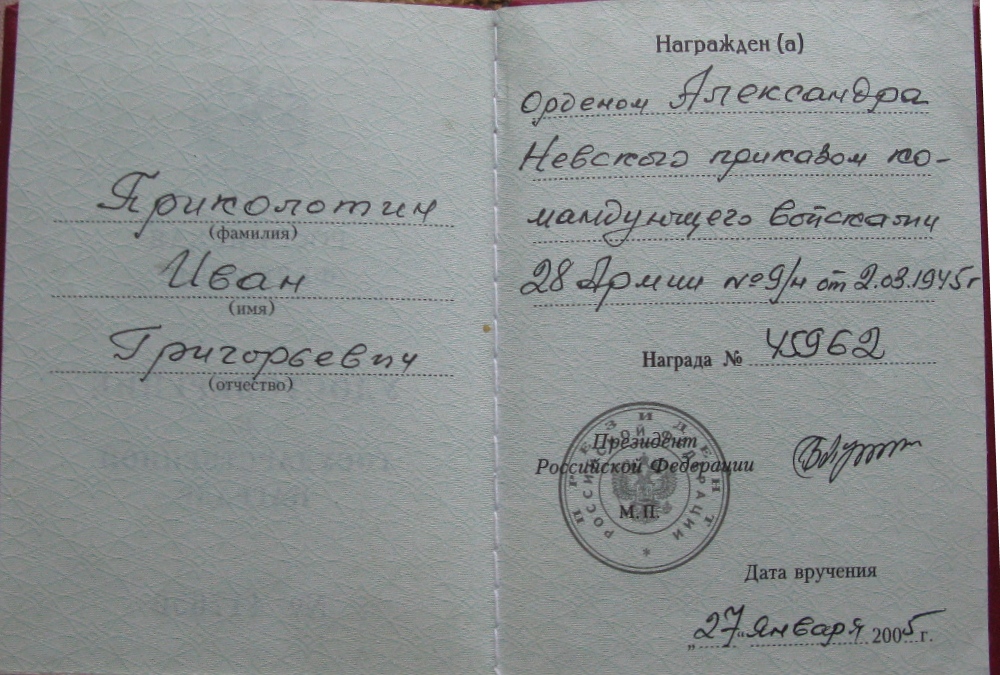 Приколотин
(фамилия)
Иван
(имя)
Григорьевич
(отчество)
Награжден (а)
Орденом Александра
Невского приказом ко-
мандующего войсками
28 Армии №9/н от 2.03.1945г
Награда № 45962
Президент
Российской Федерации
М.П.
ПРЕЗИДЕНТ
РОССИЙСКОЙ ФЕДЕРАЦИИ
Дата вручения
„27“ января 2005 г.